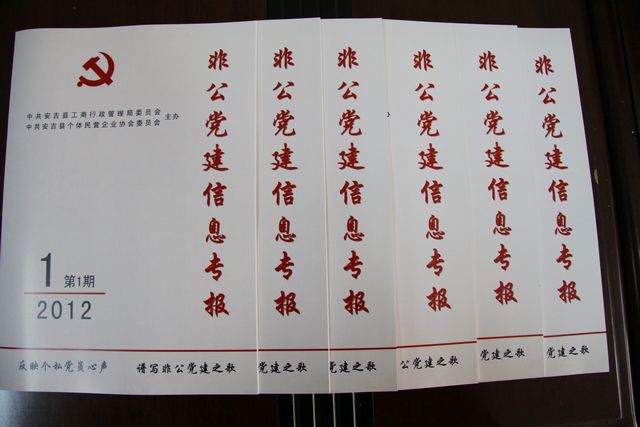 中共安吉县工商行政管理局委员会
中共安吉县个体民营企业协会委员会
主办
1 第1期
2012
反映个私党员心声
谱写非公党建之歌
非公党建信息专报
非公党建信息专报
党建之歌
非公党建信息专报
党建之歌
非公党建信息专报
公党建之歌
非公党建信息专报
党建之歌
非公党建信息专报
党建之歌